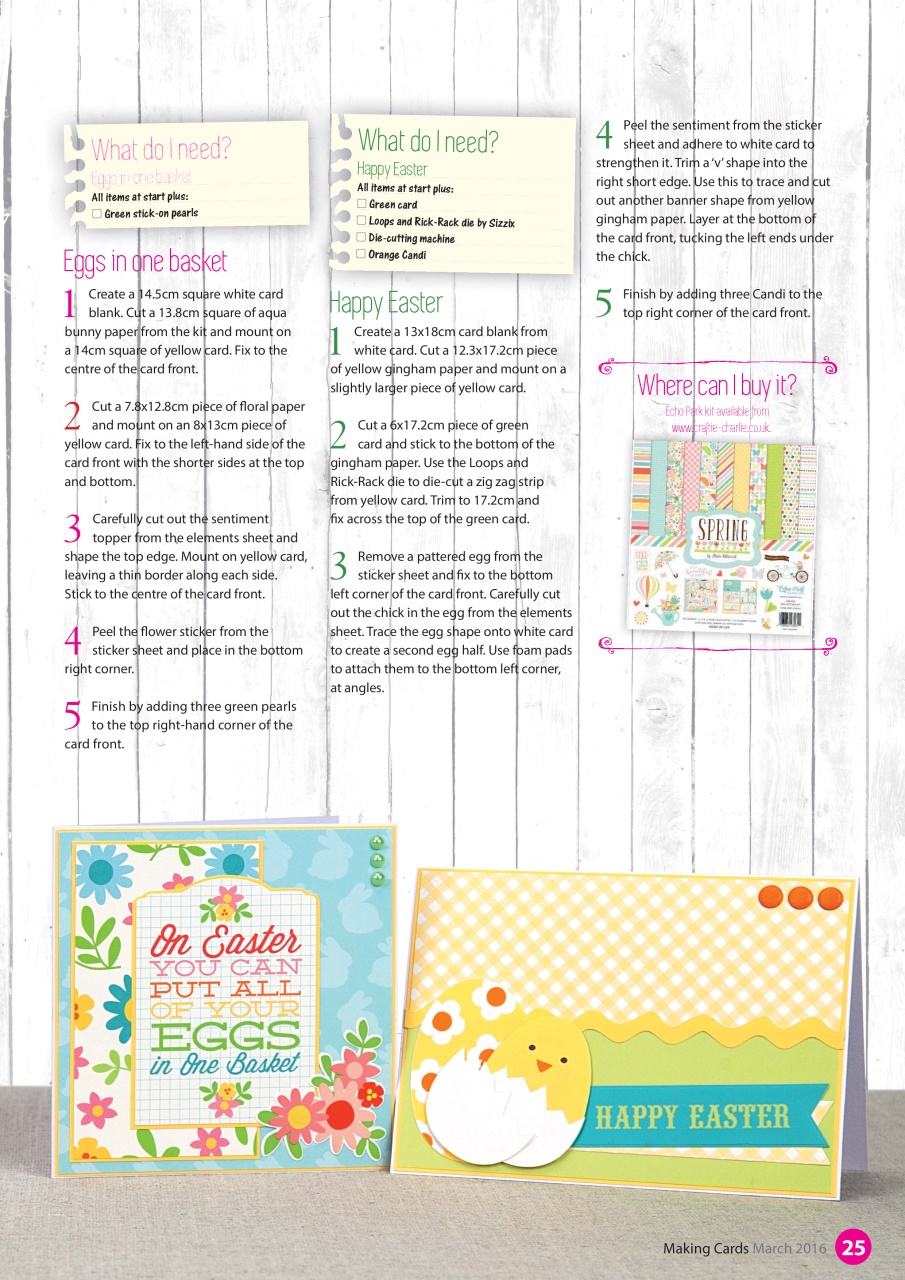 What do I need?
Eggs in one basket
All items at start plus:
Green stick-on pearls
Eggs in one basket
1 Create a 14.5cm square white card
blank. Cut a 13.8cm square of aqua
bunny paper from the kit and mount on
a 14cm square of yellow card. Fix to the
centre of the card front.
2 Cut a 7.8x12.8cm piece of floral paper
and mount on an 8x13cm piece of
yellow card. Fix to the left-hand side of the
card front with the shorter sides at the top
and bottom.
3 Carefully cut out the sentiment
topper from the elements sheet and
shape the top edge. Mount on yellow card,
leaving a thin border along each side.
Stick to the centre of the card front.
4 Peel the flower sticker from the
sticker sheet and place in the bottom
right corner.
5 Finish by adding three green pearls
to the top right-hand corner of the
card front.
What do I need?
Happy Easter
All items at start plus:
Green card
Loops and Rick-Rack die by Sizzix
Die-cutting machine
Orange Candi
Happy Easter
1 Create a 13x18cm card blank from
white card. Cut a 12.3x17.2cm piece
of yellow gingham paper and mount on a
slightly larger piece of yellow card.
2 Cut a 6x17.2cm piece of green
card and stick to the bottom of the
gingham paper. Use the Loops and
Rick-Rack die to die-cut a zig zag strip
from yellow card. Trim to 17.2cm and
fix across the top of the green card.
3 Remove a pattered egg from the
sticker sheet and fix to the bottom
left corner of the card front. Carefully cut
out the chick in the egg from the elements
sheet. Trace the egg shape onto white card
to create a second egg half. Use foam pads
to attach them to the bottom left corner,
at angles.
4 Peel the sentiment from the sticker
sheet and adhere to white card to
strengthen it. Trim a ‘v’ shape into the
right short edge. Use this to trace and cut
out another banner shape from yellow
gingham paper. Layer at the bottom of
the card front, tucking the left ends under
the chick.
5 Finish by adding three Candi to the
top right corner of the card front.
Where can I buy it?
Echo Park kit available from
www.craftie-charlie.co.uk.
SPRING
On Easter
YOU CAN
PUT ALL
OF YOUR
EGGS
in One Basket
HAPPY EASTER
Making Cards March 2016 25